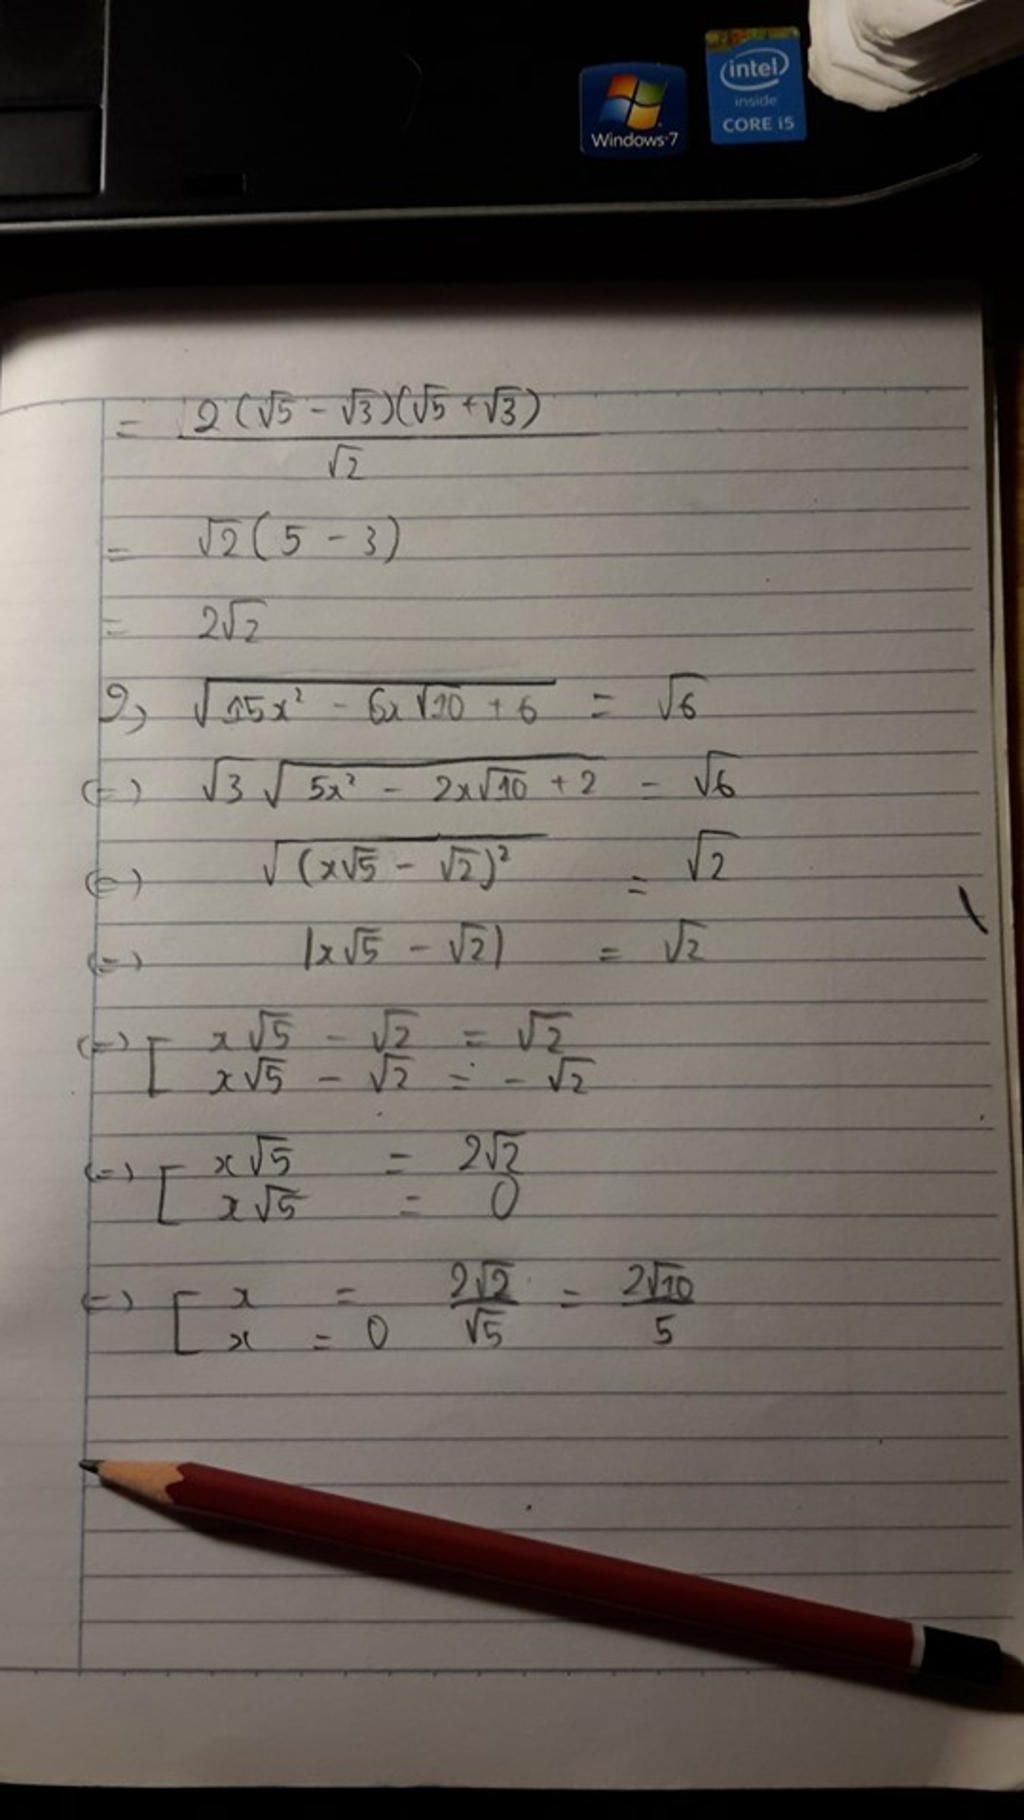 Windows 7
intel
inside
CORE i5
= 2(√5 - √3)(√5 + √3) / √2
= √2(5 - 3)
= 2√2
2, √(15x² - 6x√10 + 6) = √6
(=) √3 √(5x² - 2x√10 + 2) = √6
(=) √((x√5 - √2)²) = √2
(=) |x√5 - √2| = √2
(=) [ x√5 - √2 = √2
x√5 - √2 = -√2
(=) [ x√5 = 2√2
x√5 = 0
(=) [ x = 2√2/√5 = 2√10/5
x = 0